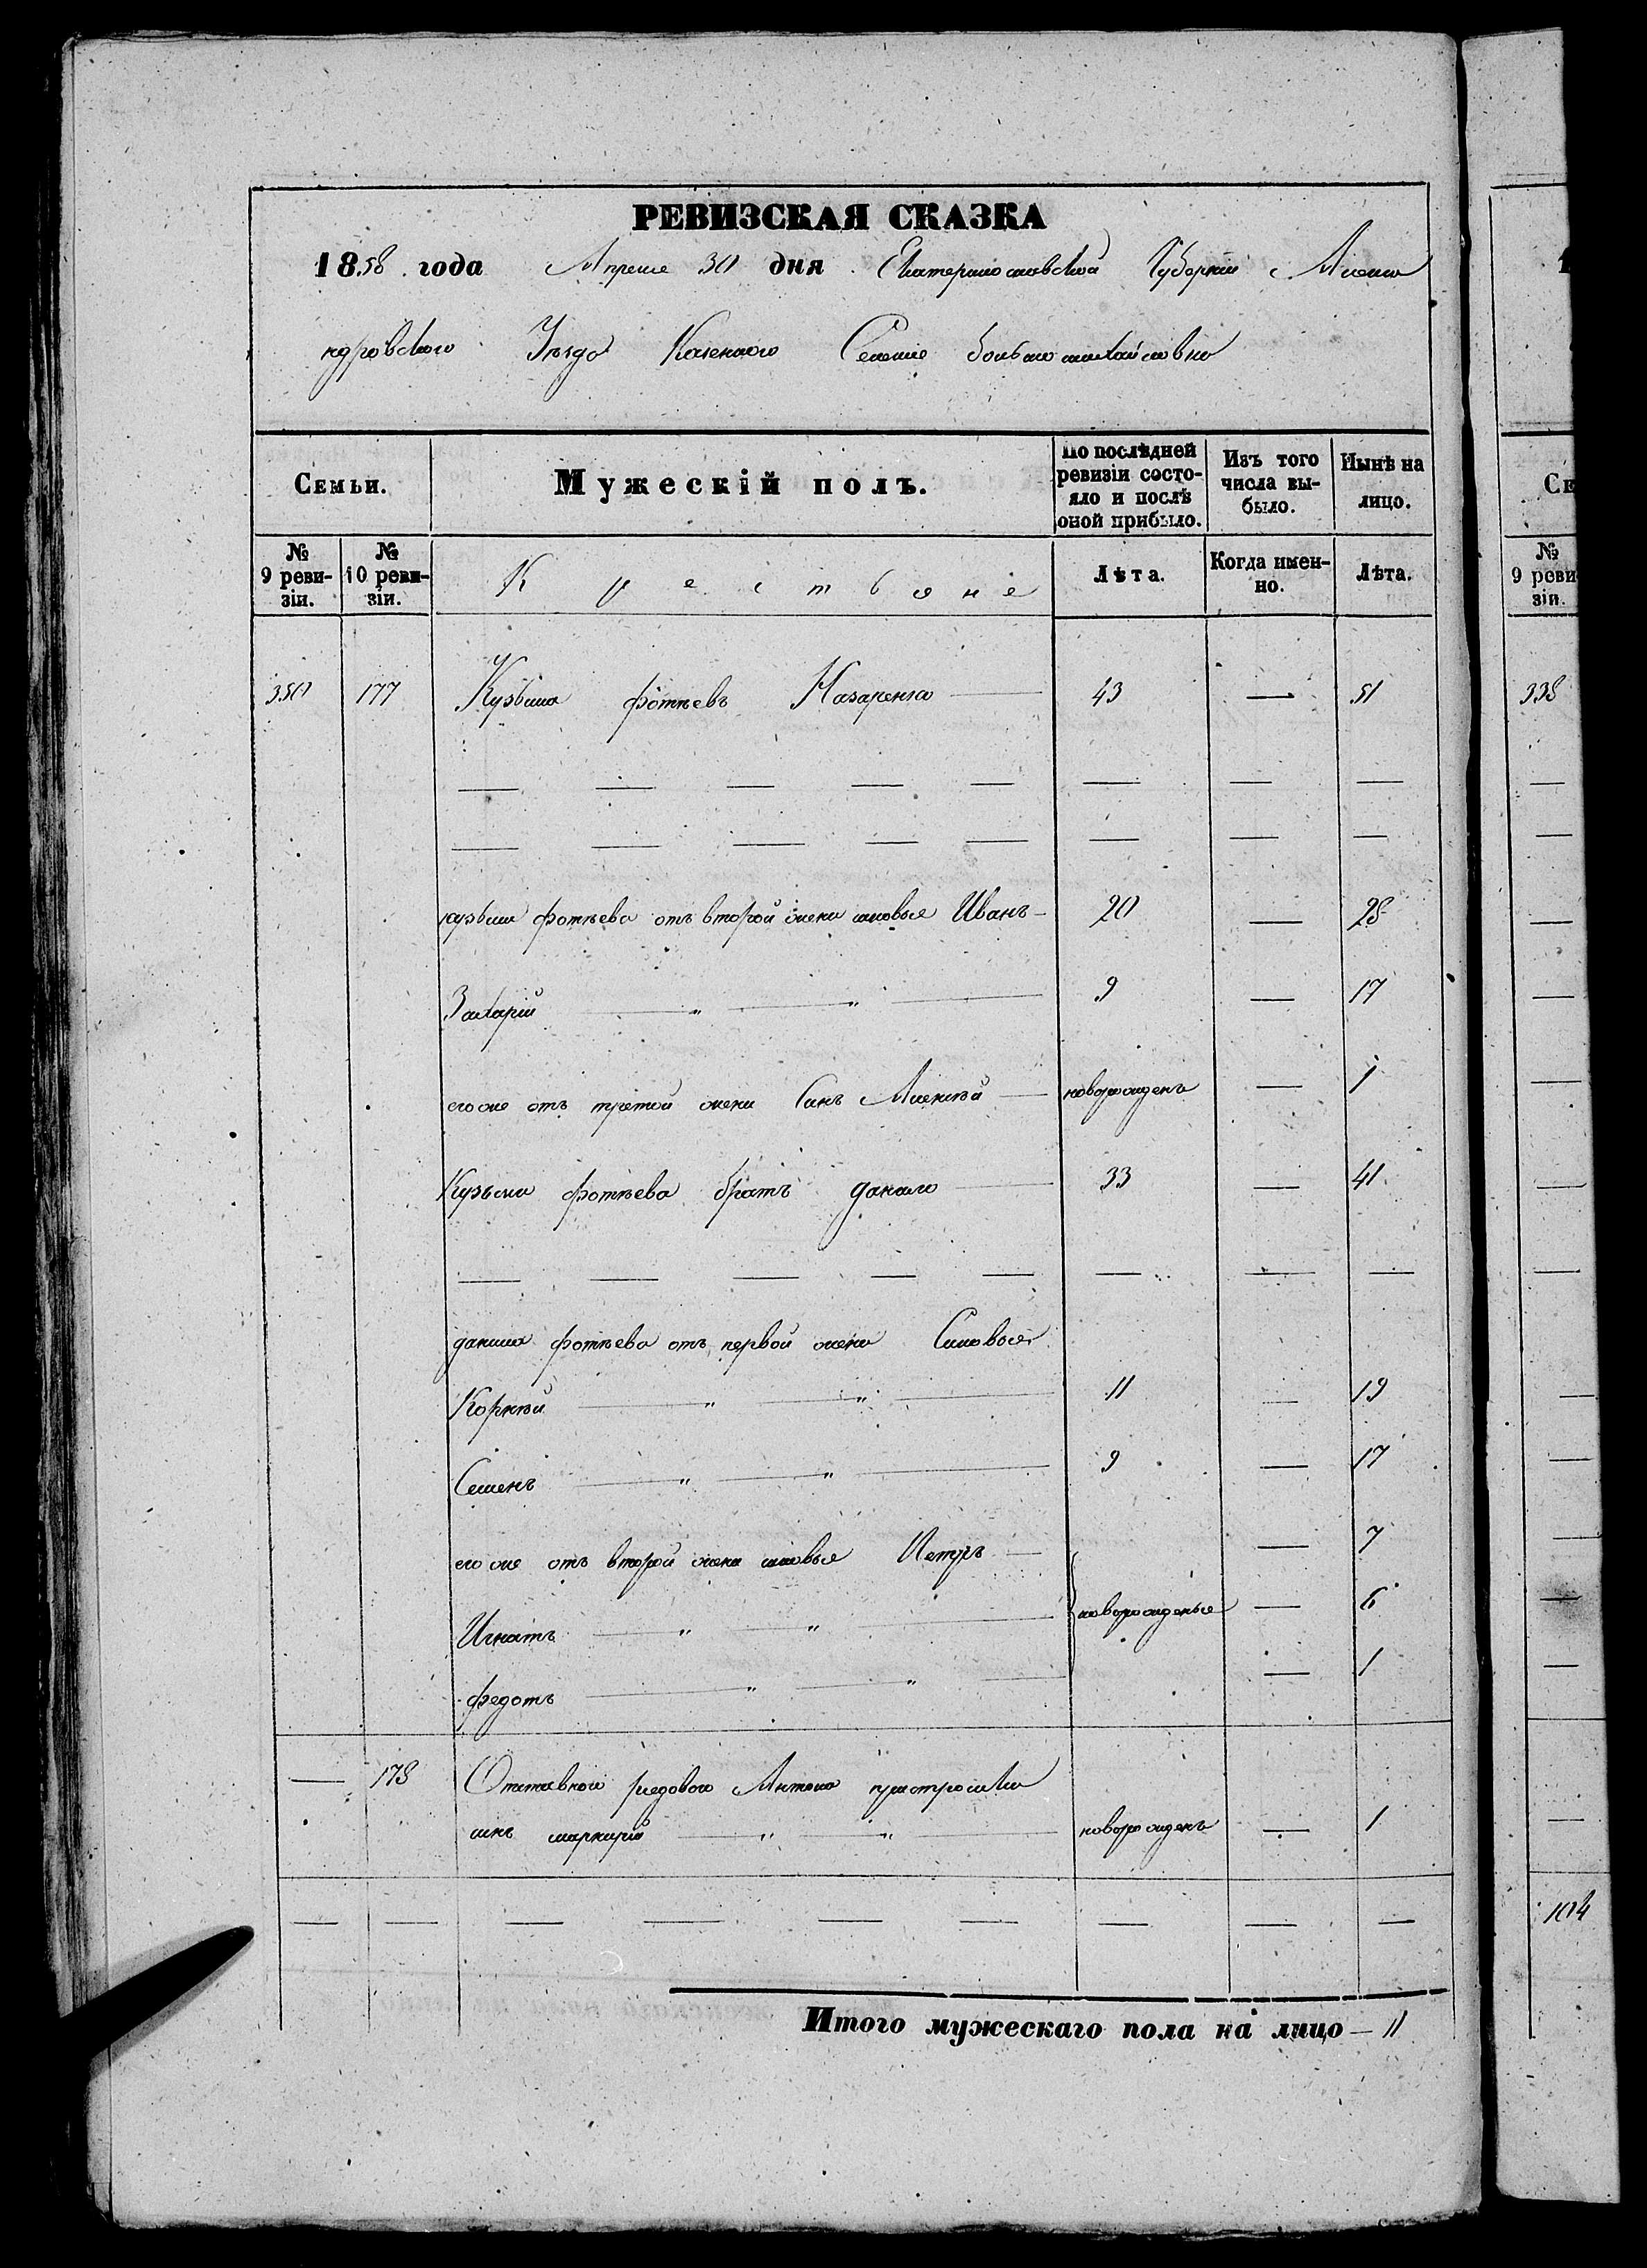 РЕВИЗСКАЯ СКАЗКА
1858 года Апреля 30 дня Екатеринославской Губерніи Алекса
ндровского Уезда Казенного Селенія большемихайловки
Семьи.
Мужескій полъ.
По послѣдней ревизіи состо-
яло и послѣ
оной прибыло.
Изъ того
числа вы-
было.
Нынѣ на
лицо.
№
9 реви-
зіи.
№
10 реви-
зіи.
Крестьяне
Лѣта.
Когда имен-
но.
Лѣта.
350 177 Кузьма фотѣевъ Назаренко — 43 — 51
— — — — — — — —
— — — — — — — —
кузьми фотѣева отъ второй жени сыновья Иванъ — 20 — 28
Захарій — " — " — 9 — 17
егоже отъ третой жени Синъ Алексѣй — новорожденъ — 1
Кузьми фотѣева братъ данило — 33 — 41
— — — — — — — —
данила фотѣева отъ первой жени Синовья
Корнѣй — " — " — 11 — 19
Семенъ — " — " — 9 — 17
егоже отъ второй жени синовья Петръ — — 7
Игнатъ — " — " — новорожденые — 6
федотъ — " — " — — 1
— 178 Отставного рядового Антона
синъ меркурій — " — " — новорожденъ — 1
— — — — — — — — —
Итого мужескаго пола на лицо — 11
Се
№
9 реви
зіи.
338
104